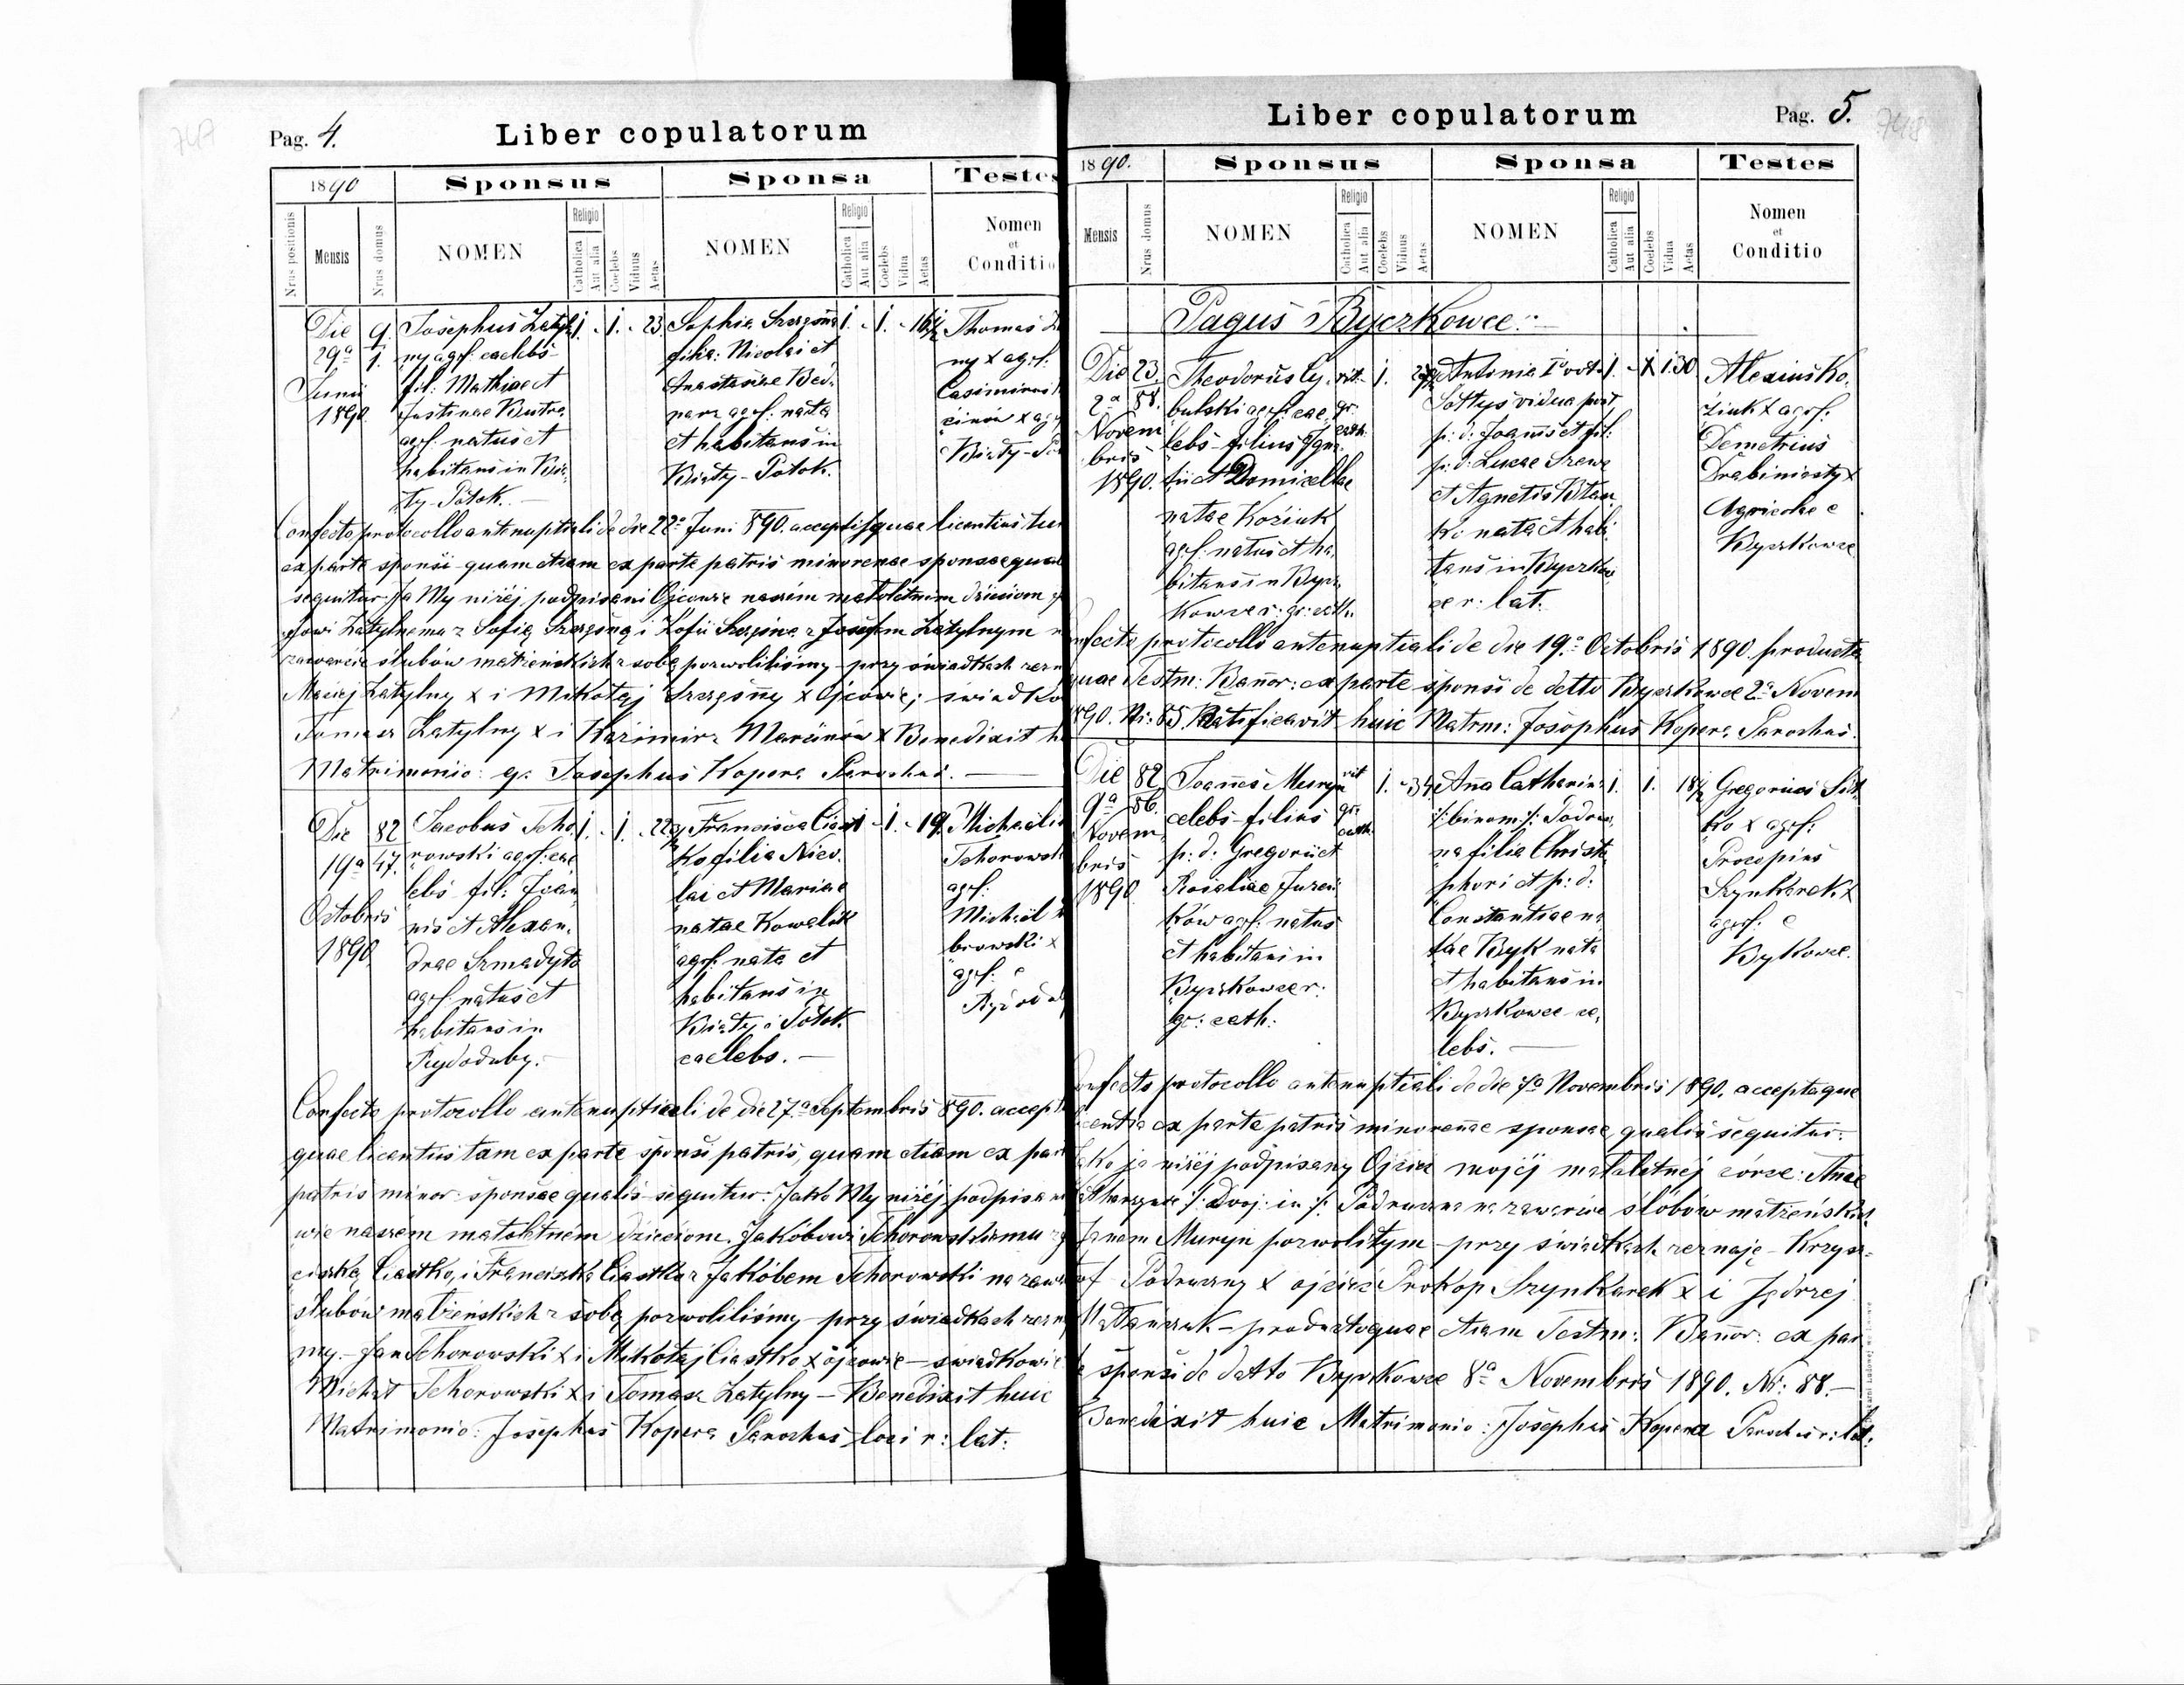 Pag. 4.
Liber copulatorum
1890
Sponsus
Sponsa
Testes
Nrus positionis
Mensis
Nrus domus
NOMEN
Religio
Catholica
Aut alia
Coelebs
Viduus
Aetas
NOMEN
Religio
Catholica
Aut alia
Coelebs
Vidua
Aetas
Nomen
et
Conditio
Die
29a
Junii
1890.
9.
1.
Josephus Zatyl
ny agr: caelebs
fil: Mathiae et
Justinae
agr: natus et
habitans in Bia
ły-Potok. —
1. - 1. - 23.
Sophia Szczęsna
filia: Nicolai et
Anastasiae Bed.
narz agr: nata
et habitans in
Biały-Potok.
1. - 1. - 16 1/2
Thomas
ny x agr:
Casimirus
cinów x
Biały-
Confecto protocollo antenuptiali de die 22a Juni 890. acceptisque licentiis
ex parte sponsi quam etiam ex parte patris minorenae sponsae
sequitur Ja My niżej podpisani Ojcowie naszém małoletnim dzieciom
Zatylnemu z Sofią Szczęsną i Zofii Szczęsna z Josefem Zatylnym
zawarcie ślubów małżeńskich z sobą pozwoliliśmy - przy świadkach
Maciej Zatylny x i Mikołaj Szczęsny x Ojcowie; świadko
Tomasz Zatylny x i Kazimirz Marcinów x Benedixit
Matrimonio: Josephus Kopera Parochus. —
Die
19a
Octobris
1890.
82
47.
Jacobus Tcho
rowski agr: cae
lebs fil: Joan
nis et Alexan.
drae Szmadyła
agr: natus et
habitans in
Rydoduby. —
1. - 1. - 22
Francisca Ciast
ko filia Nico.
lai et Mariae
natae Kowalik
agr: nata et
habitans in
Biały Potok
caelebs. —
1. - 1. - 19.
Michaelis
Tchorowsk
agr:
Michaël
browski x
agr: e
Confecto protocollo antenuptiali de die 27a Septembris 890.
quae licentiis tam ex parte sponsi patris, quam etiam ex
patris minor: sponsae qualis sequitur: Jako My niżej
wie naszem małoletném dzieciom. Jakóbowi Tchorowskiemu
ciszką Ciastko, i Franciszka Ciastko z Jakóbem Tchorowski na
ślubów małżeńskich z sobą pozwoliliśmy - przy świadkach
my. - Jan Tchorowski x i Mikołaj Ciastko x ojcowie - świadkowie
Michał Tchorowski x i Tomasz Zatylny - Benedixit huic
Matrimonio: Josephus Kopera Parochus loci r: lat:
Liber copulatorum
Pag. 5.
1890.
Sponsus
Sponsa
Testes
Mensis
Nrus domus
NOMEN
Religio
Catholica
Aut alia
Coelebs
Viduus
Aetas
NOMEN
Religio
Catholica
Aut alia
Coelebs
Vidua
Aetas
Nomen
et
Conditio
Pagus Byczkowce: —
Die
2a
Novem
bris
1890.
23.
58.
Theodorus Cy
bulski agr: cae
lebs - filius Igna
tii et Domicellae
natae Koziuk
agr: natus et ha
bitans in Bycz
kowce r: gr: cath.
rit.
gr:
cath.
1.
Antonia Io voto
Sołtys vidua post
p: d: Joannis et fil:
p: d: Lucae Szewc
et Agnetis
nata et habi
tans in Byczkow
ce r: lat.
1. 30
Alexius Ko.
ziuk x agr:
Demetrius
Drabiniasty x
Agricolae e
Byczkowce
protocollo antenuptiali de die 19a Octobris 1890. producto
quae Testm: Bannor: ex parte sponsi de detto Byczkowce 2a Novem
890. Nr: 85. Ratificavit huic Matrm: Josephus Kopera Parochus.
Die
9a
Novem
bris
1890
82
86.
Joannes Muryn
celebs - filius
p: d: Gregorii et
Rosaliae Jurci
ków agr: natus
et habitans in
Byczkowce r:
gr: cath:
rit
gr:
cath.
1. - 34
Anna Catharina
/: binom :/
na filia Christo
phori et p: d:
Constantiae na
tae Byk nata
et habitans in
Byczkowce cae
lebs. —
1. 1. 18 1/2
Gregorius
ko x agr:
Procopius
Szynkarek x
agr: e
Bykowce.
protocollo antenuptiali de die 7a Novembris 1890. acceptaque
ex parte patris minorennae sponsae qualis sequitur:
Jako ja niżéj podpisany Ojciec mojéj małoletnéj córce: Annie
na zawarcie ślóbów małżeńskich
Janem Muryn pozwoliłym - przy świadkach zeznaję - Krzysz-
tof x ojciec Prokop Szynkarek x i Jędrzej
- productoque etiam Testm: Bannor: ex par
te sponsi de datto Byczkowce 8a Novembris 1890. Nr: 88. —
Benedixit huic Matrimonio: Josephus Kopera Parochus r: lat: